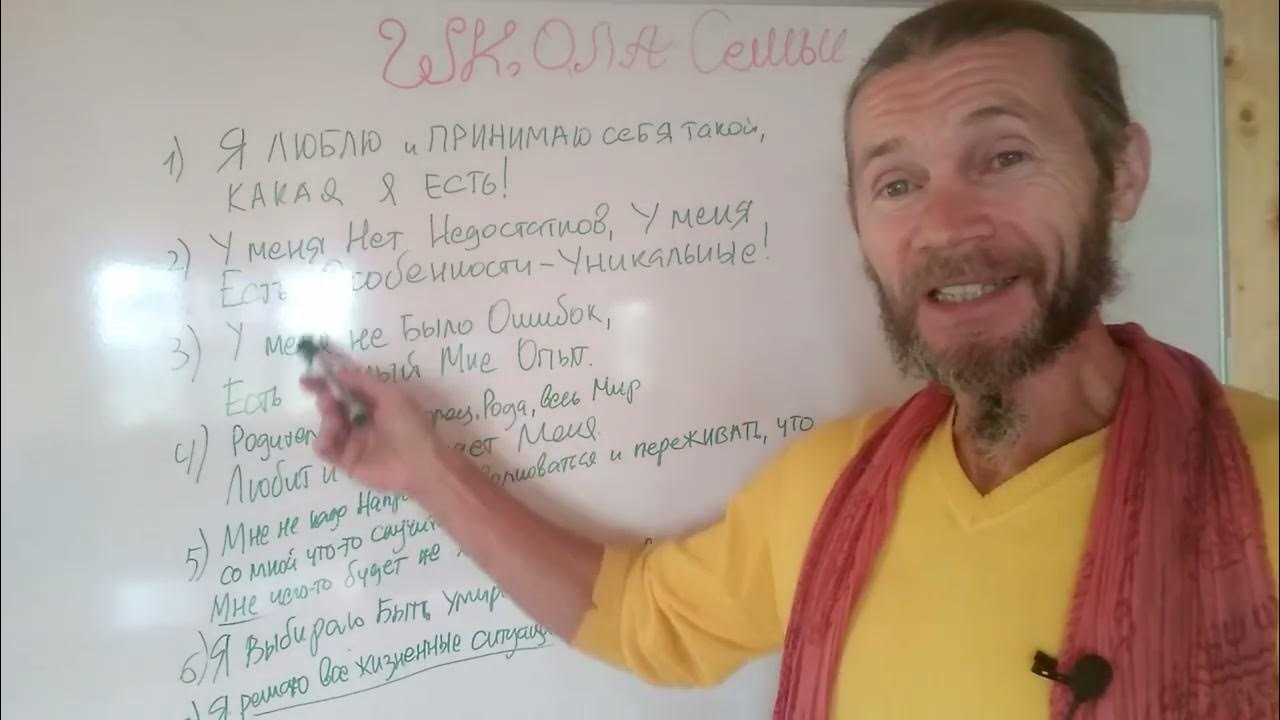 ШКОЛА Семьи
1) Я ЛЮБЛЮ и ПРИНИМАЮ себя такой,
КАКАЯ Я ЕСТЬ!
2) У меня Нет Недостатков, У меня
Есть Особенности - Уникальные!
3) У меня не Было Ошибок,
Есть Мне Опыт.
4) Рода, весь Мир
Любит и Меня.
5) Мне не надо и переживать, что
со мной что-то
Мне чего-то будет не
6) Я Выбираю Быть
Я решаю все жизненные